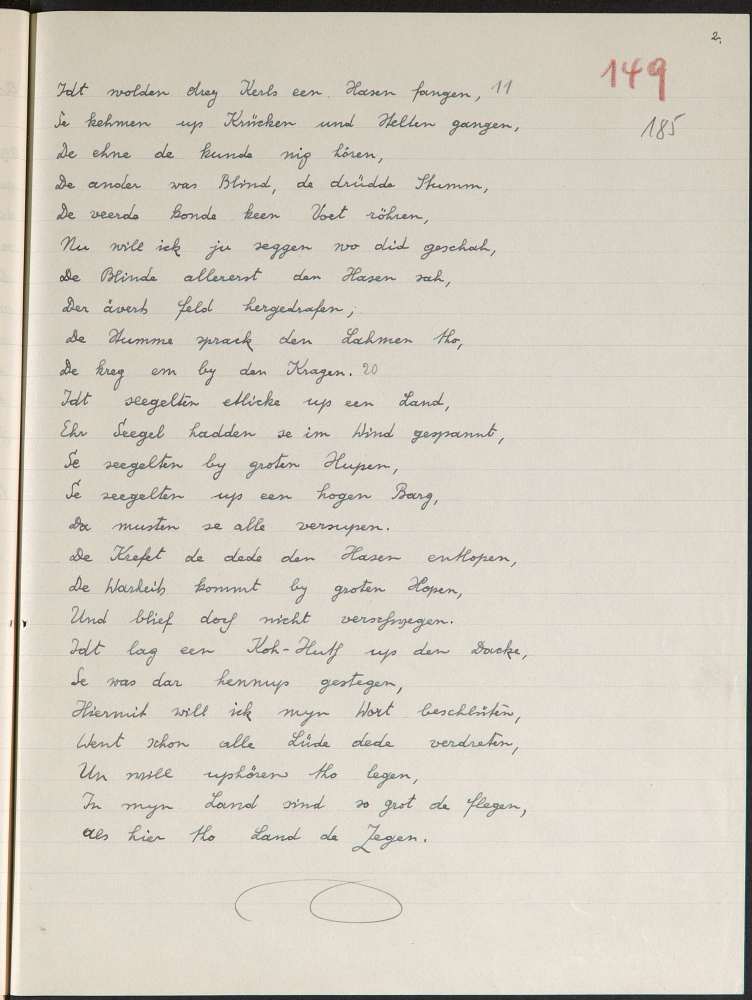 2.
149
185
Idt wolden drey Kerls een Hasen fangen, 11
Se kehmen up Krücken und Stelten gangen,
De ehne de kunde nig hören,
De ander was Blind, de drüdde Stumm,
De veerde konde keen Voet röhren,
Nu will ick ju seggen wo did geschah,
De Blinde allererst den Hasen sah,
Der äverb feld hergedrafen,
De Stumme sprack den Lahmen tho,
De kreg em by den Kragen. 20
Idt seegelten etlicke up een Land,
Ehr Seegel hadden se im Wind gespannt,
Se seegelten by groten Hupen,
Se seegelten up een hogen Barg,
Da musten se alle versupen.
De Krefet de dede den Hasen entlopen,
De Warheit kommt by groten Hopen,
Und blief doch nicht verschwegen.
Idt lag een Koh-Huth up den Dacke,
Se was dar hennup gestegen,
Hiermit will ick myn Wort beschlüten,
Went schon alle Lüde dede verdreten,
Un will uphören tho legen,
In myn Land sind so grot de flegen,
als hier tho Land de Zegen.